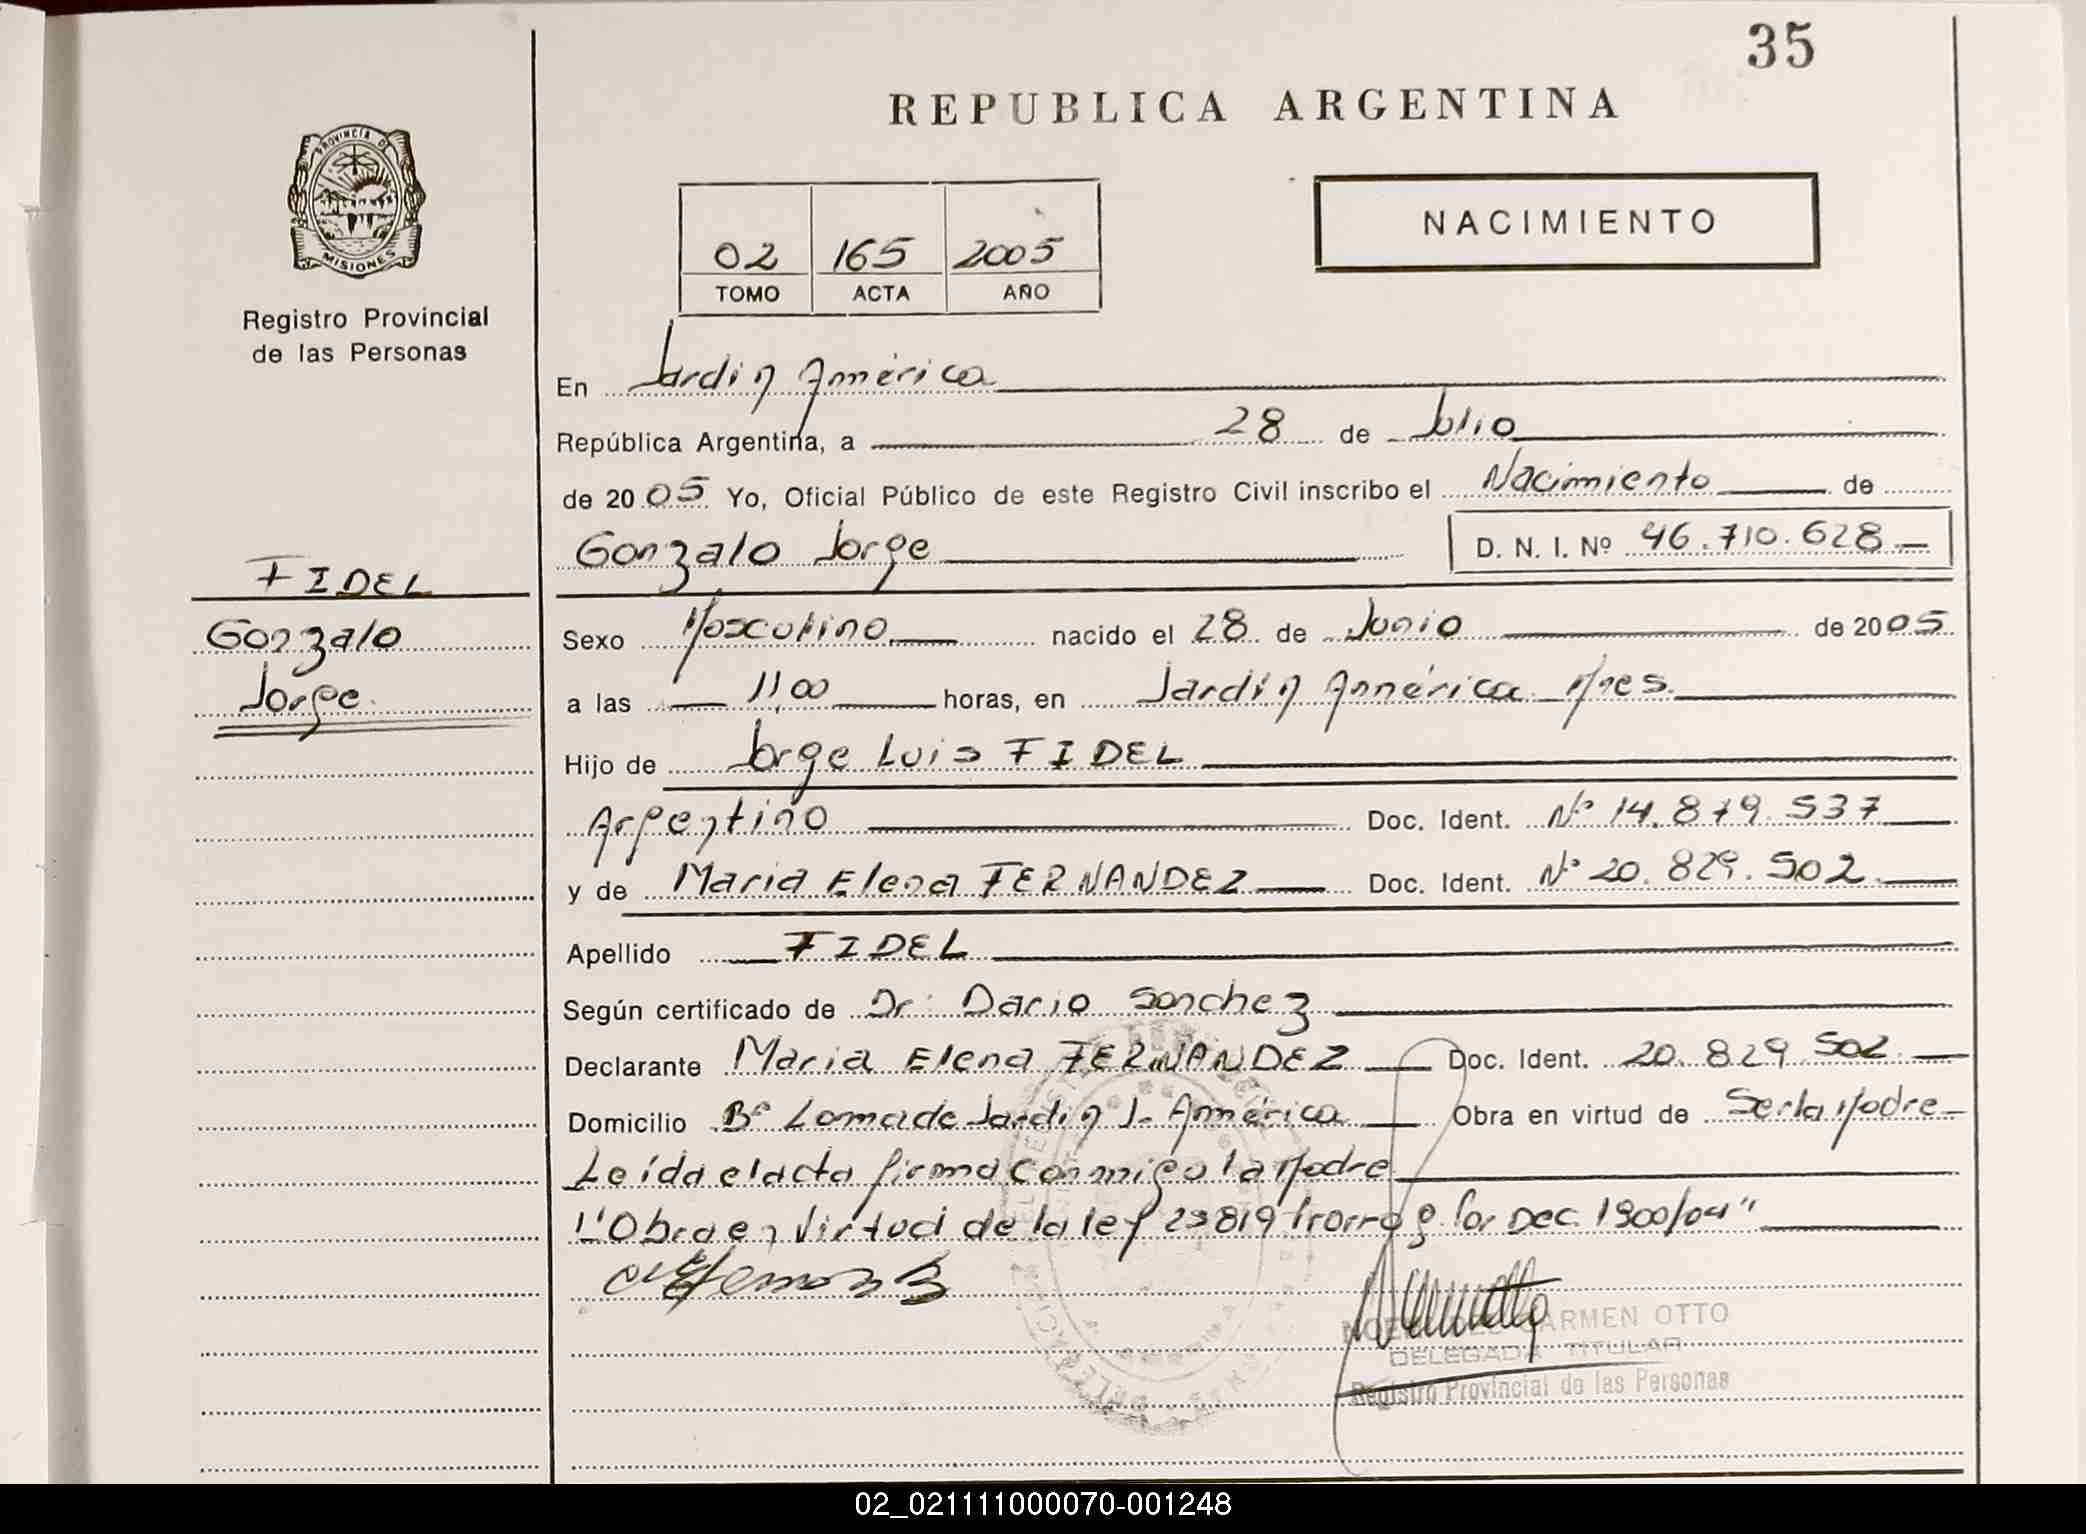 35
REPUBLICA ARGENTINA
PROVINCIA DE
MISIONES
Registro Provincial
de las Personas
02 165 2005
TOMO ACTA AÑO
NACIMIENTO
En Jardin América
República Argentina, a 28 de Julio
de 2005 Yo, Oficial Público de este Registro Civil inscribo el Nacimiento de
Gonzalo Jorge D. N. I. Nº 46.710.628
FIDEL
Gonzalo
Jorge.
Sexo Masculino nacido el 28 de Junio de 2005
a las 11,00 horas, en Jardin América Mnes.
Hijo de Jorge Luis FIDEL
Argentino Doc. Ident. Nº 14.879.537
y de Maria Elena FERNANDEZ Doc. Ident. Nº 20.829.502
Apellido FIDEL
Según certificado de Dr. Dario Sanchez
Declarante Maria Elena FERNANDEZ Doc. Ident. 20.829.502
Domicilio Bº Loma de Jardin J. América Obra en virtud de Ser la Madre
Leída el acta firma conmigo la Madre
"Obra en Virtud de la ley 25819 Prorrog. Por Dec. 1900/04"
CARMEN OTTO
DELEGADA TITULAR
Registro Provincial de las Personas
02_021111000070-001248